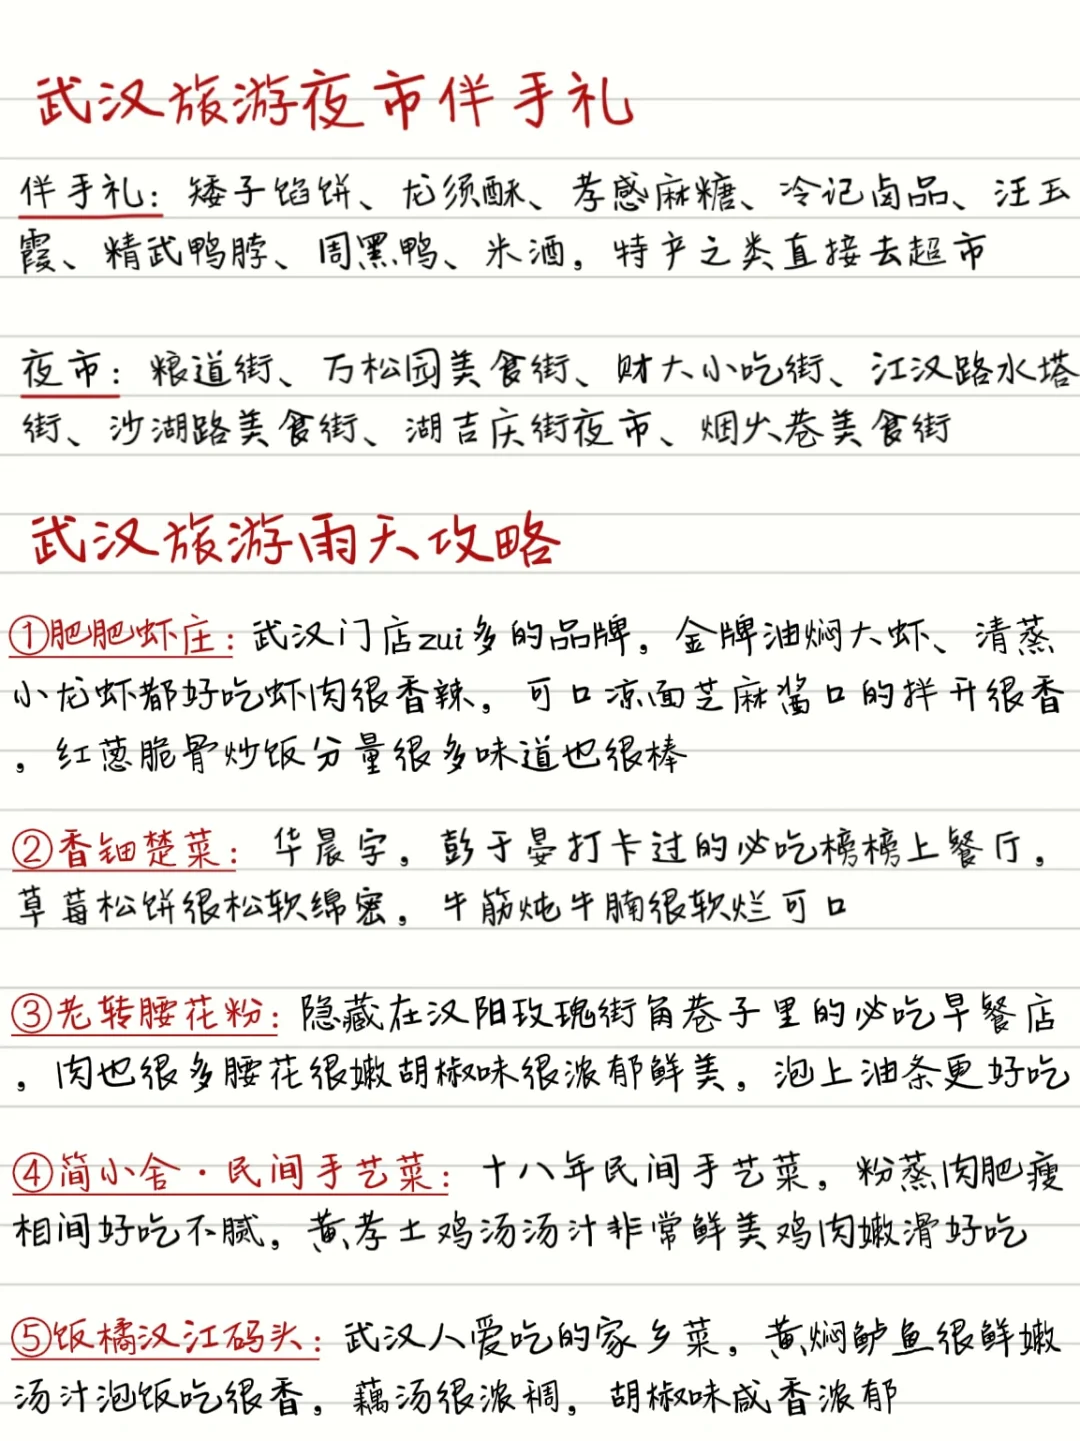 武汉旅游夜市伴手礼
伴手礼：矮子馅饼、龙须酥、孝感麻糖、冷记卤品、汪玉
霞、精武鸭脖、周黑鸭、米酒，特产之类直接去超市
夜市：粮道街、万松园美食街、财大小吃街、江汉路水塔
街、沙湖路美食街、湖吉庆街夜市、烟火巷美食街
武汉旅游雨天攻略
①肥肥虾庄：武汉门店zui多的品牌，金牌油焖大虾、清蒸
小龙虾都好吃虾肉很香辣，可口凉面芝麻酱口的拌开很香
，红葱脆骨炒饭分量很多味道也很棒
②香钿楚菜：华晨字，彭于晏打卡过的必吃榜榜上餐厅，
草莓松饼很松软绵密，牛筋炖牛腩很软烂可口
③老转腰花粉：隐藏在汉阳玫瑰街角巷子里的必吃早餐店
，肉也很多腰花很嫩胡椒味很浓郁鲜美，泡上油条更好吃
④简小舍·民间手艺菜：十八年民间手艺菜，粉蒸肉肥瘦
相间好吃不腻，黄孝土鸡汤汤汁非常鲜美鸡肉嫩滑好吃
⑤饭橘汉江码头：武汉人爱吃的家乡菜，黄焖鲈鱼很鲜嫩
汤汁泡饭吃很香，藕汤很浓稠，胡椒味咸香浓郁